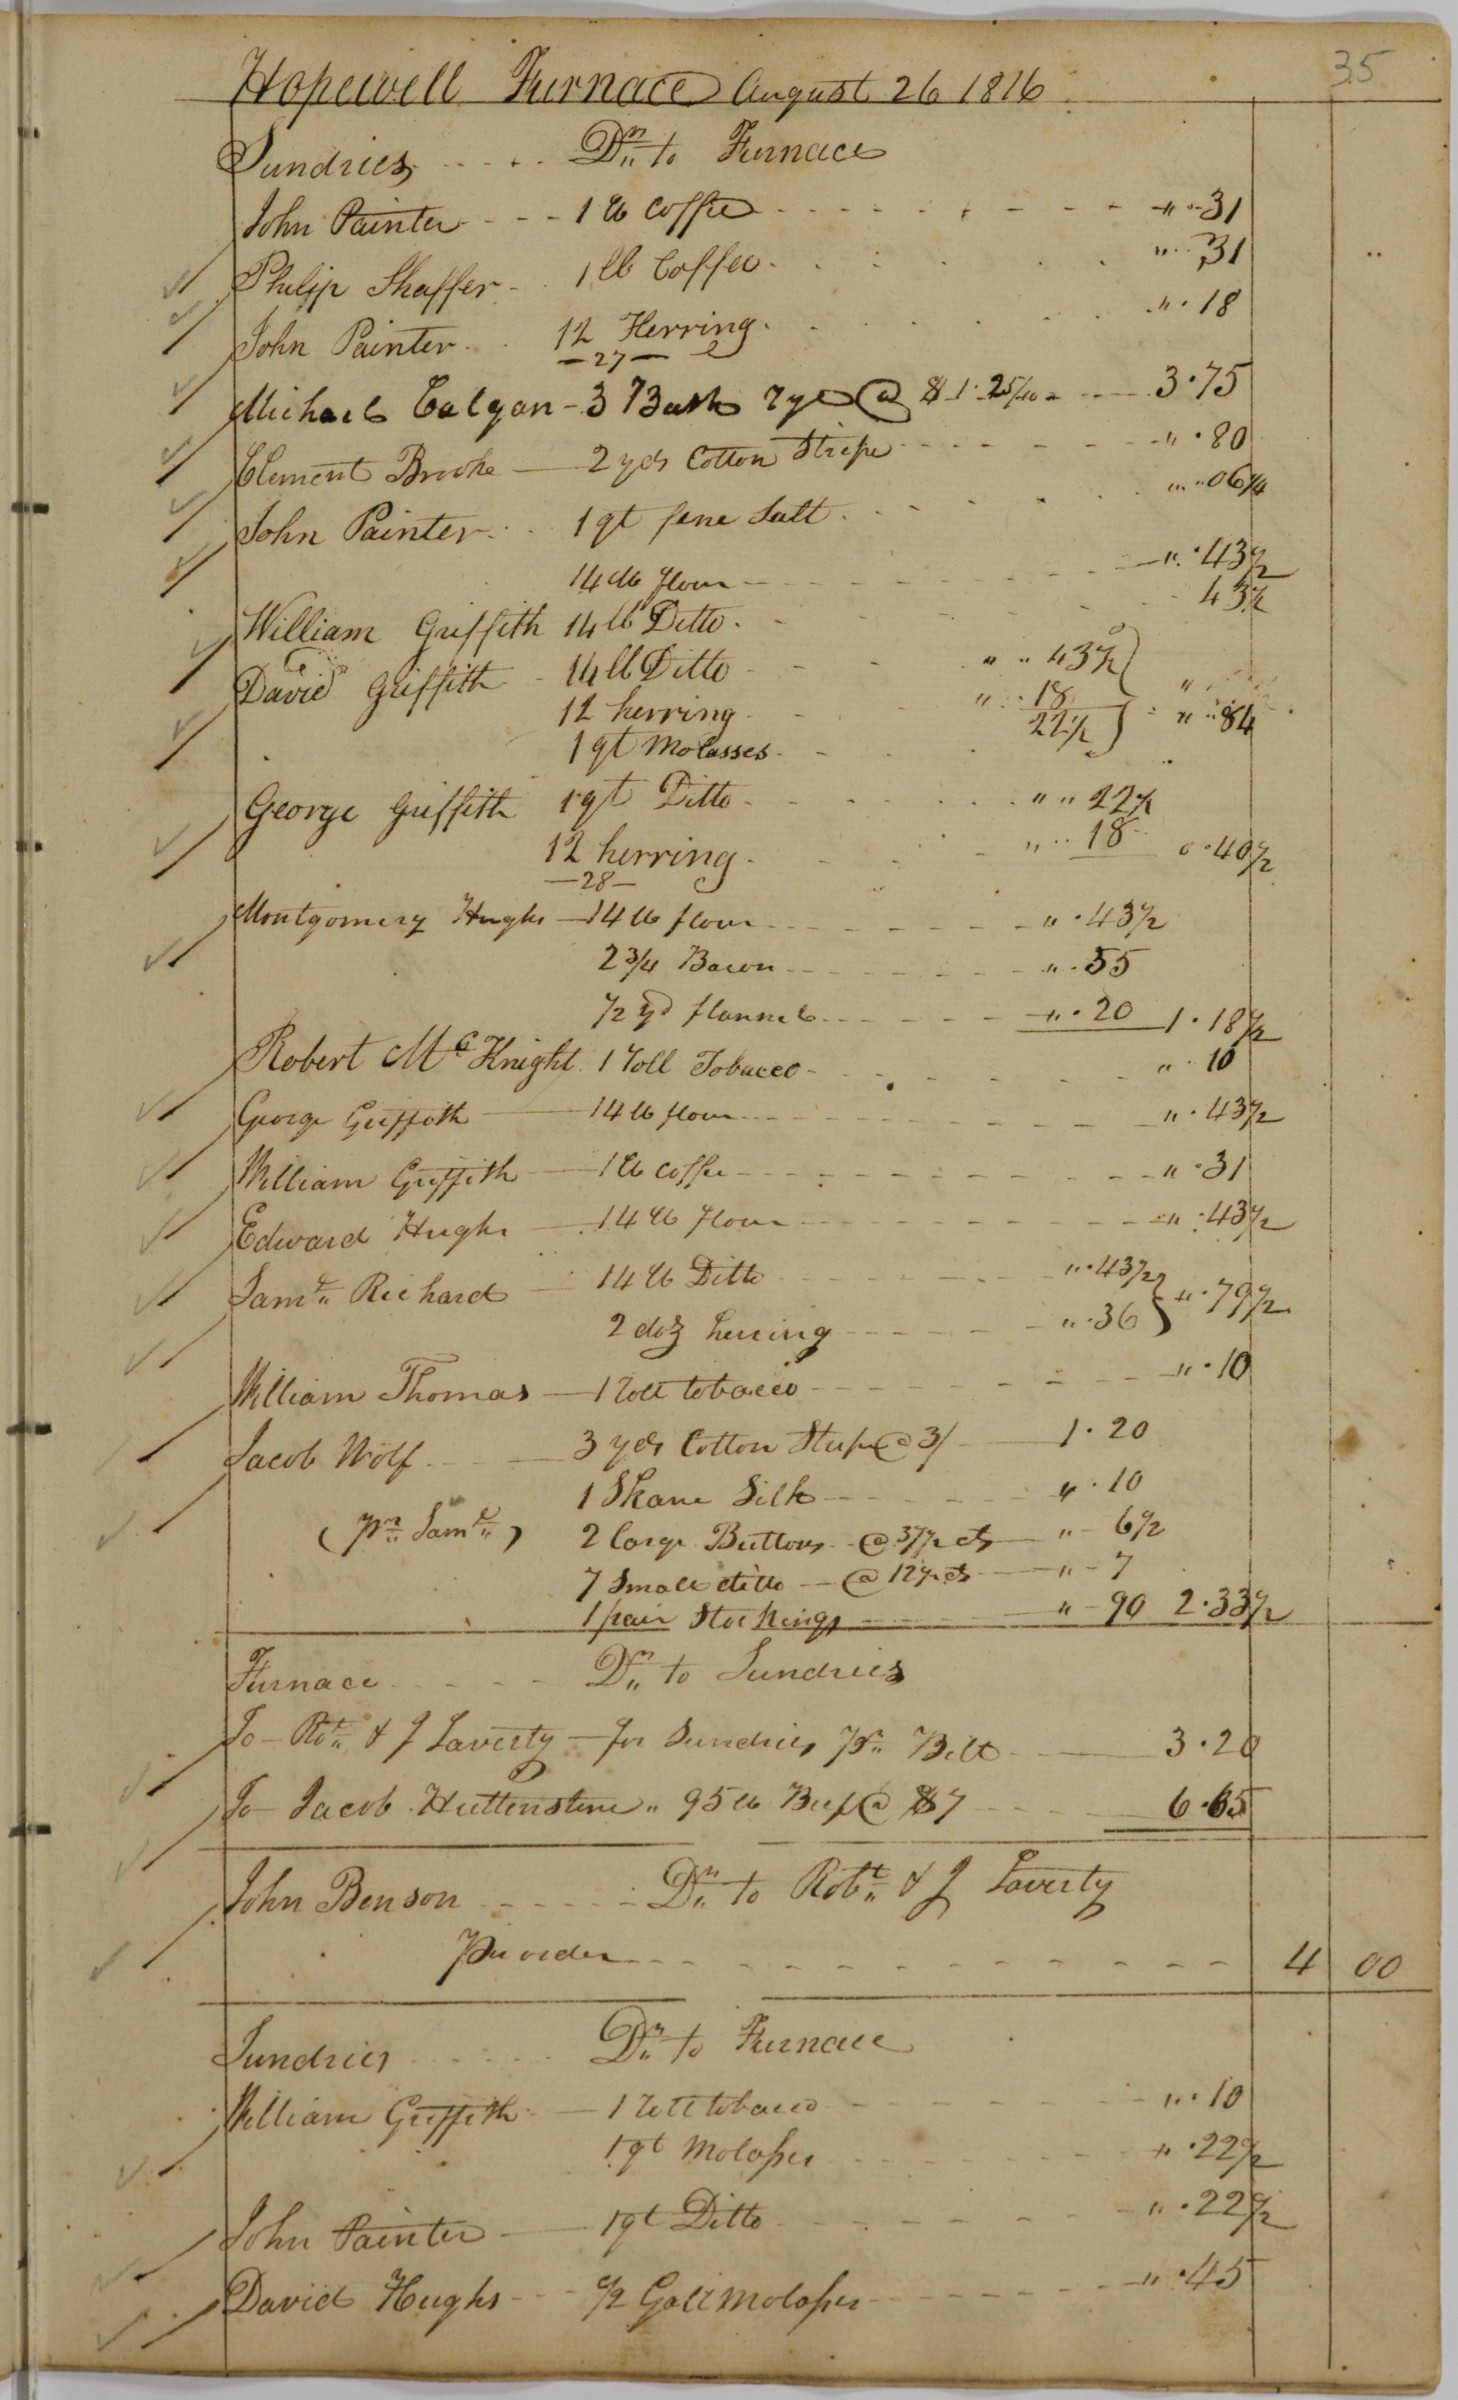 35
Hopewell Furnace August 26 1816
Sundries Dr to Furnace
John Painter 1 lb Coffee " 31
Philip Shaffer 1 lb Coffee " 31
John Painter 12 Herring " 18
—27—
Michael Calgan 3 Bush Rye @ $1.25/100 3.75
Clement Brooke 2 yds Cotton Stripe " .80
John Painter 1 qt fine Salt " 06 1/4
14 lb flour " .43 1/2
William Griffith 14 lb Ditto 43 1/2
David Griffith 14 lb Ditto " 43 1/2
12 herring " 18
1 qt Molasses 22 1/2 " 84
George Griffith 1 qt Ditto " 22 1/2
12 herring " 18 0.40 1/2
—28—
Montgomery Hughs 14 lb flour " .43 1/2
2 3/4 Bacon " .55
1/2 yd flannel " .20 1.18 1/2
Robert McKnight 1 roll Tobacco " 10
George Griffith 14 lb flour " .43 1/2
William Griffith 1 lb Coffe " .31
Edward Hughs 14 lb flour " .43 1/2
Saml Richard 14 lb Ditto " .43 1/2
2 doz herring " .36 " .79 1/2
William Thomas 1 roll tobacco " .10
Jacob Wolf 3 yds Cotton Stripe @ 3/ 1.20
1 Skane Silk " .10
(pr Saml) 2 large Buttons @ 37 1/2 cts " 6 1/2
7 Small ditto @ 12 1/2 cts " 7
1 pair Stockings " 90 2.33 1/2
Furnace Dr to Sundries
To Robt & J Laverty for Sundries pr Bill 3.20
To Jacob Huttenstine " 95 lb Beef @ $7 6.65
John Benson Dr to Robt & J Laverty
Per order 4 00
Sundries Dr to Furnace
William Griffith 1 roll tobacco " .10
1 qt Molasses " .22 1/2
John Painter 1 qt Ditto " .22 1/2
David Hughs 1/2 Gall Molasses " .45